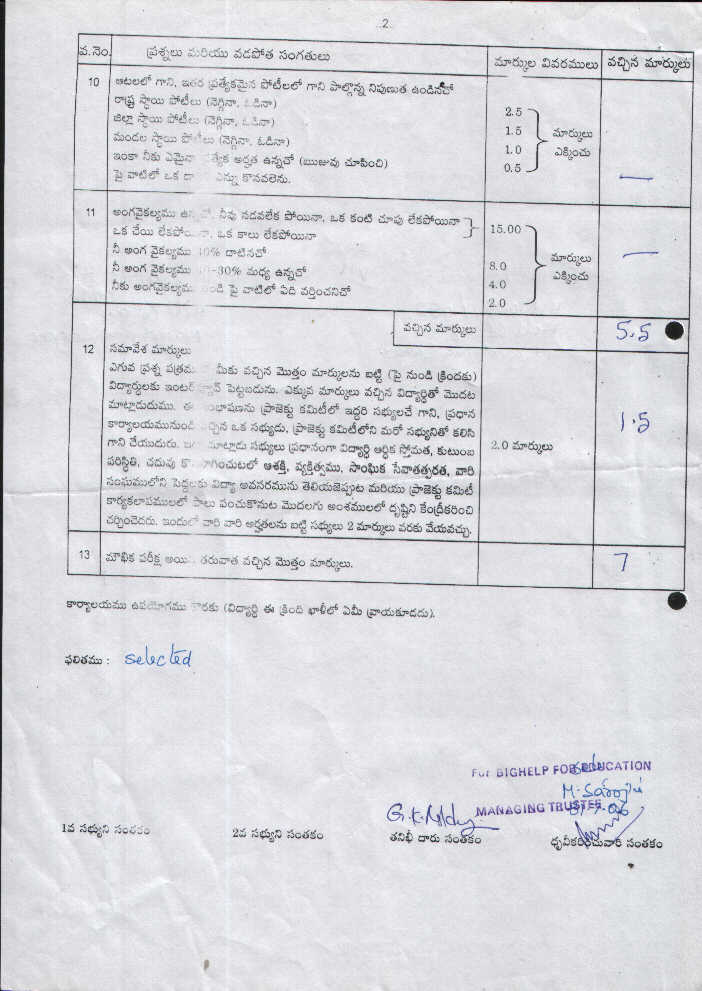 2
వ.నెం. ప్రశ్నలు మరియు వడపోత సంగతులు మార్కుల వివరములు వచ్చిన మార్కులు
10 ఆటలలో గాని, ఇతర ప్రత్యేకమైన పోటీలలో గాని పాల్గొన్న నిపుణుత ఉండినచో
రాష్ట్ర స్థాయి పోటీలు (నెగ్గినా, ఓడినా) 2.5
జిల్లా స్థాయి పోటీలు (నెగ్గినా, ఓడినా) 1.5 మార్కులు
మండల స్థాయి పోటీలు (నెగ్గినా, ఓడినా) 1.0 ఎక్కించు
ఇంకా నీకు ఎమైనా అర్హత ఉన్నచో (ఋజువు చూపించి) 0.5
పై వాటిలో ఒక ఎన్ను కొనవలెను. —
11 అంగవైకల్యము నీవు నడవలేక పోయినా, ఒక కంటి చూపు లేకపోయినా 15.00
ఒక చేయి ఒక కాలు లేకపోయినా
నీ అంగ వైకల్యము 40% దాటినచో 8.0 మార్కులు —
నీ అంగ వైకల్యము -30% మధ్య ఉన్నచో 4.0 ఎక్కించు
నీకు అంగవైకల్యము పై వాటిలో ఏది వర్తించనిచో 2.0
వచ్చిన మార్కులు 5.5
12 సమావేశ మార్కులు
ఎగువ ప్రశ్న మీకు వచ్చిన మొత్తం మార్కులను బట్టి (పై నుండి క్రిందకు)
విద్యార్థులకు పెట్టబడును. ఎక్కువ మార్కులు వచ్చిన విద్యార్థితో మొదట 1.5
మాట్లాడుదుము. ఈ ప్రాజెక్టు కమిటీలో ఇద్దరి సభ్యులచే గాని, ప్రధాన
కార్యాలయమునుండి వచ్చిన ఒక సభ్యుడు, ప్రాజెక్టు కమిటీలోని మరో సభ్యునితో కలిసి
గాని చేయుదురు. సభ్యులు ప్రధానంగా విద్యార్థి ఆర్థిక స్తోమత, కుటుంబ 2.0 మార్కులు
పరిస్థితి, చదువు ఆశక్తి, వ్యక్తిత్వము, సాంఘిక సేవాతత్పరత, వారి
సంఘములోని పెద్దలకు విద్యా అవసరమును తెలియజెప్పుట మరియు ప్రాజెక్టు కమిటీ
కార్యకలాపములలో పాలు పంచుకొనుట మొదలగు అంశములలో దృష్టిని కేంద్రీకరించి
చర్చించెదరు. ఇందులో వారి వారి అర్హతలను బట్టి సభ్యులు 2 మార్కులు వరకు వేయవచ్చు.
13 మౌఖిక పరీక్ష తరువాత వచ్చిన మొత్తం మార్కులు. 7
కార్యాలయము ఉపయోగము కొరకు (విద్యార్థి ఈ క్రింది ఖాళీలో ఏమీ వ్రాయకూడదు).
ఫలితము : selected
For BIGHELP FOR EDUCATION
M. Sarojini
G.K. Reddy MANAGING TRUSTEE
1వ సభ్యుని సంతకం 2వ సభ్యుని సంతకం తనిఖీ దారు సంతకం ధృవీకరించువారి సంతకం